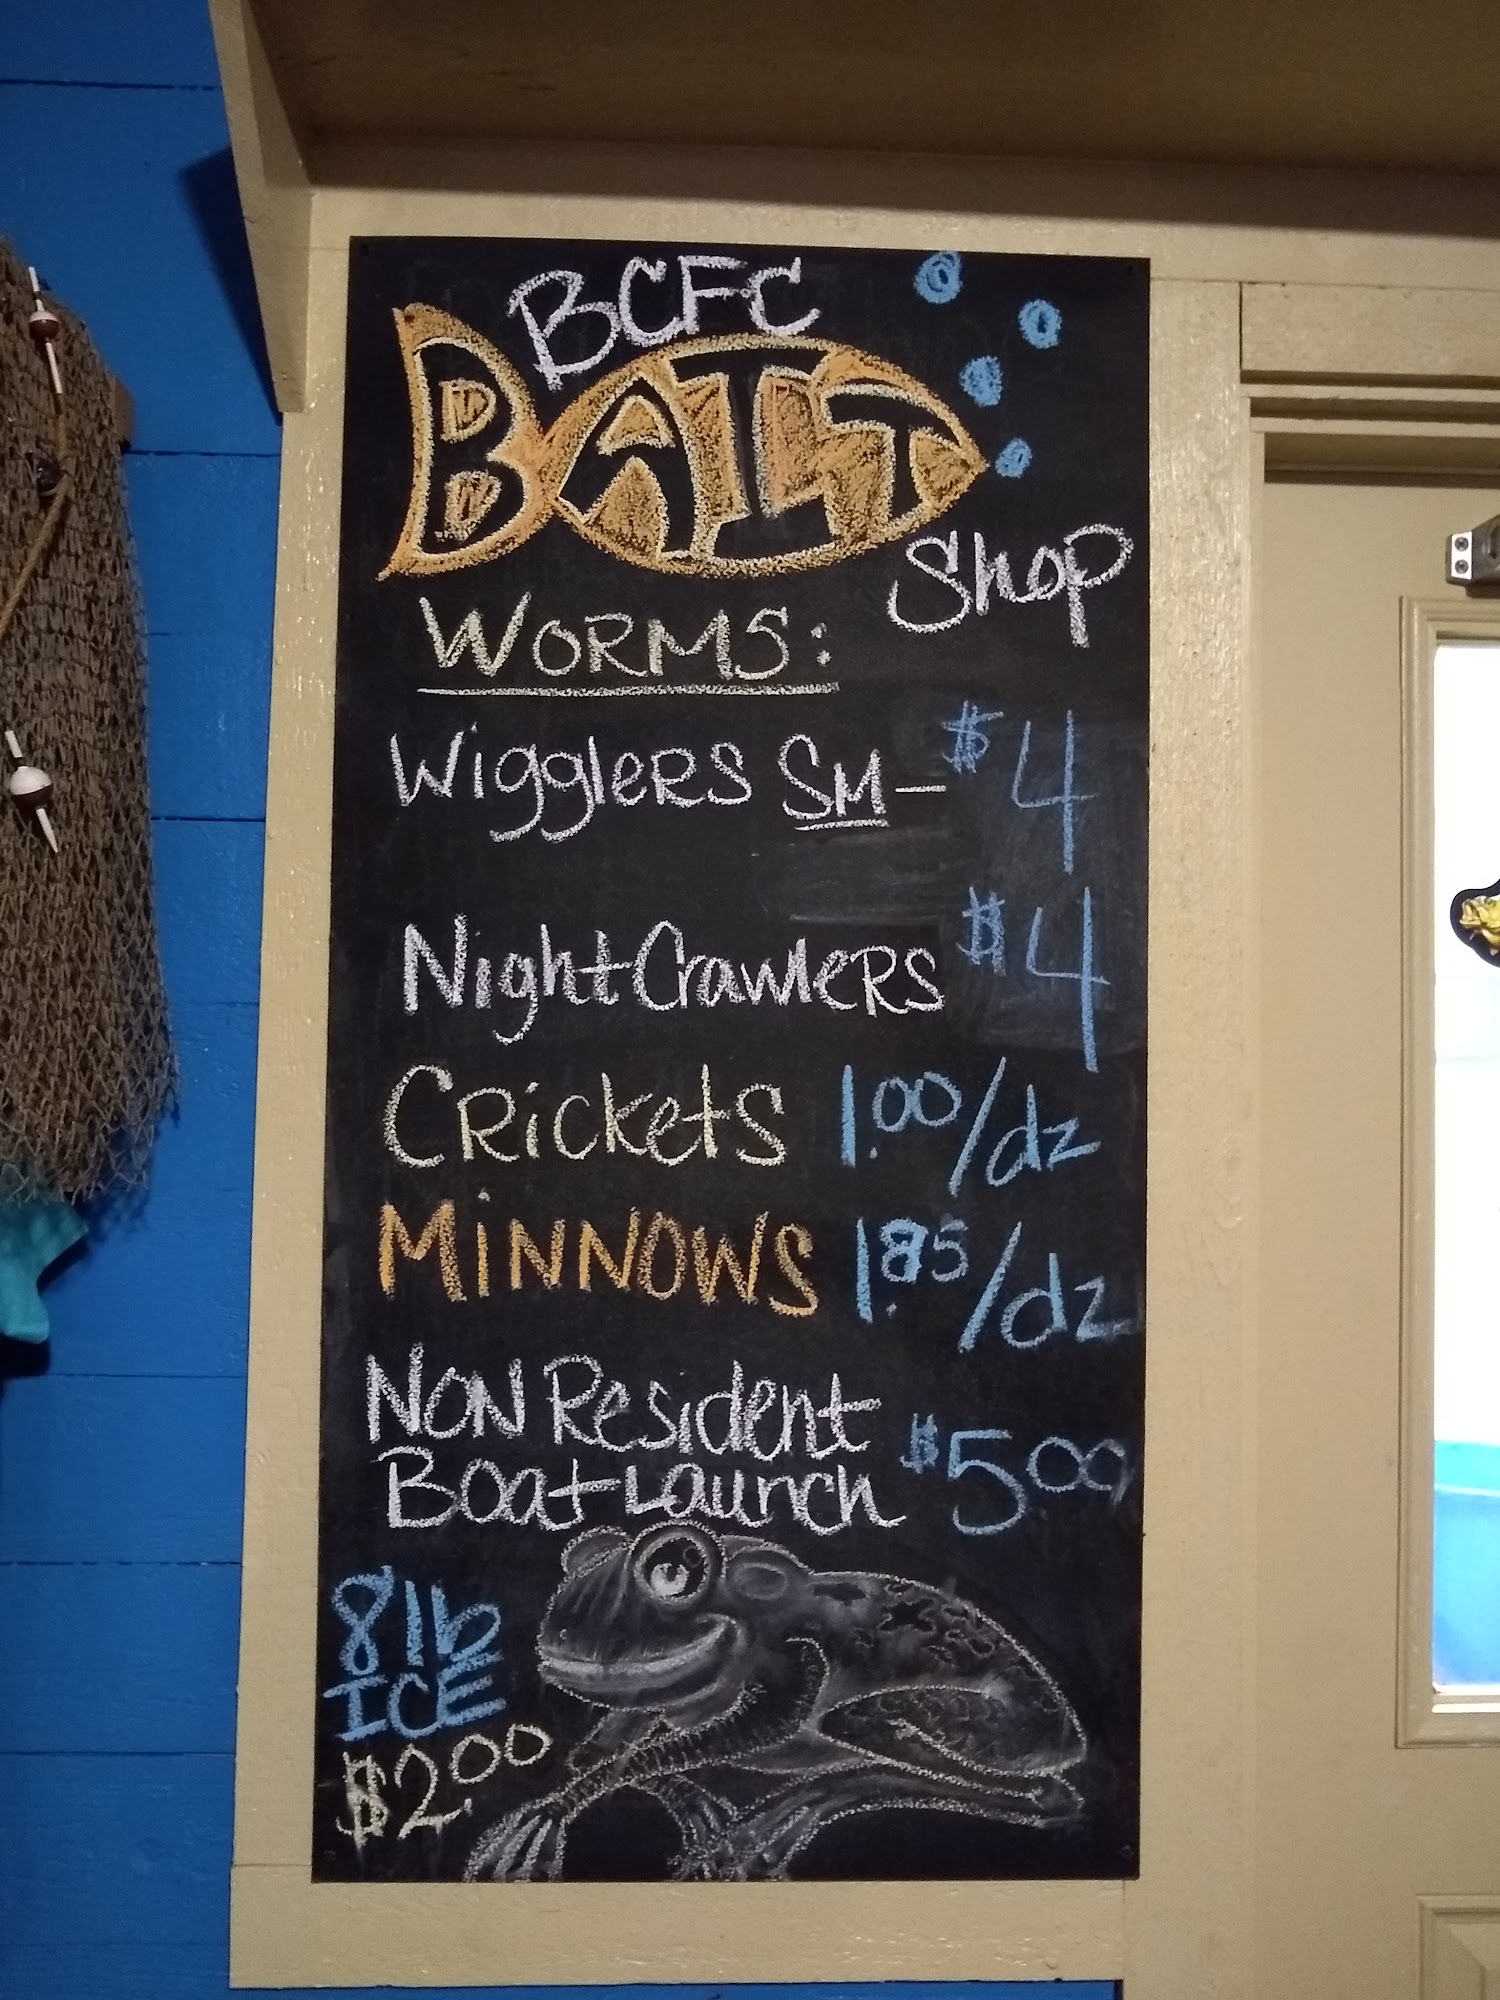 BCFC
BAIT
Shop
WORMS:
WigglERS SM - $4
NightCrawlERS $4
CRickets 1.00/dz
MiNNOWS 1.85/dz
NON Resident
Boat Launch $5.00
8 lb
ICE
$2.00